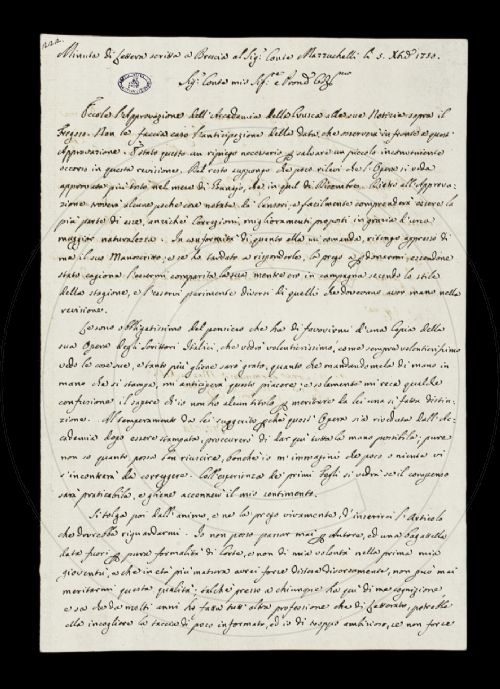 122.
Minuta di Lettera scritta a Brescia al Sig.r Conte Mazzuchelli li 5. Xbre 1750.
Sig.r Conte mio Sig.re e Pron
Eccole l'Approvazione dell'Accademia della Crusca alle sue Notizie sopra il
Fregoso. Non le faccia caso l'anticipazione della data, che osserverà in fronte a quest'
Approvazione. È stato questo un ripiego necessario p salvare un piccolo inconveniente
occorso in questa revisione. Del resto suppongo che poco rilevi che l'Opera si veda
approvata più tosto nel mese di che in quel di Dietro all'Approva-
zione troverà alcune poche cose notate da' Censori, e facilmente comprenderà essere la
più parte di esse, anziché Correzioni, miglioramenti proposti in grazia d'una
maggior naturalezza. In conformità di quanto ella mi comanda, ritengo appresso di
me il suo Manoscritto; e se ho tardato a risponderle, la prego a pdonarmi, essendone
stato cagione l'essermi comparita la sua mentre ero in campagna secondo lo stile
della stagione, e l'esservi parimente diversi di quelli che dovevano aver mano nella
revisione.
Le sono obbligatissimo del pensiero che ha di favorirmi d'una Copia della
sua Opera degli Scrittori Italici, che vedrò volentierissimo, come sempre volentierissimo
vedo le cose sue, e tanto più gliene sarò grato, quanto che mandandomela di mano in
mano che si stampa, mi anticiperà questo piacere; e solamente mi reca qualche
confusione il sapere ch'io non ho alcun titolo p meritare da lei una sì fatta distin-
zione. Al temperamento da lei suggerito pché quest'Opera sia riveduta dall'Ac-
cademia dopo essere stampata, procurerò di dar più tutta la mano possibile; pure
non so quanto possa ben riuscire, benché io m'immagini che poco o niente vi
s'incontrerà da correggere. Coll'esperienza de' primi fogli si vedrà se il compenso
sarà praticabile, e gliene accennerò il mio sentimento.
Si tolga poi dall'animo, e ne la prego vivamente, d'inserirvi l'Articolo
che dovrebbe riguardarmi. Io non posso passar mai p Autore, ed una bagattella
data fuori p pure formalità di Corte, e non di mia volontà nella prima mia
gioventù, e che in età più matura avrei forse distesa diversamente, non può mai
meritarmi questa qualità; talché presso a chiunque ha qu' di me cognizione
e sa che da molti anni ho fatta tutt'altra professione che di Letterato, potrebbe
ella incogliere la taccia di poco informato, ed io di troppo ambizioso, se non forse